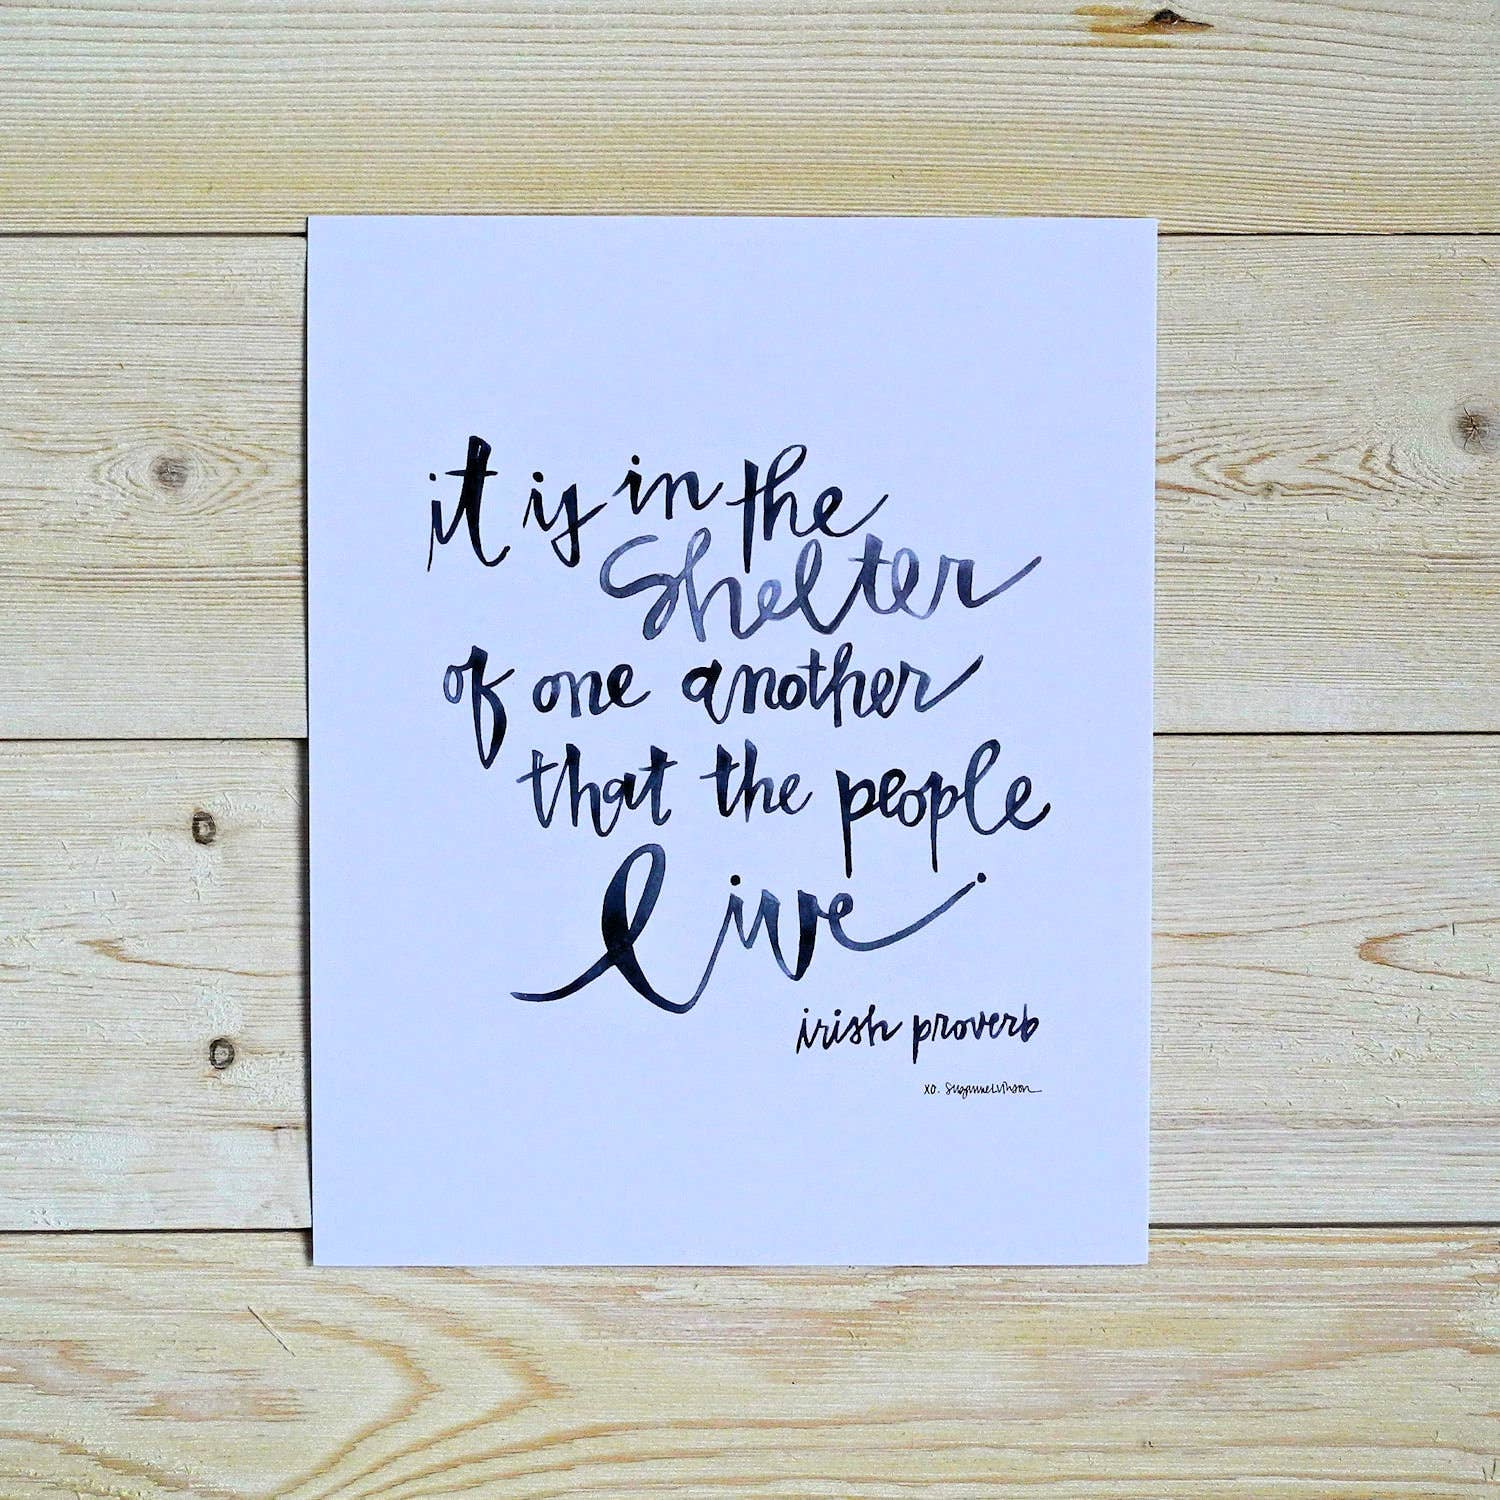 it is in the
Shelter
of one another
that the people
live.
irish proverb
xo. Suzannelvinson